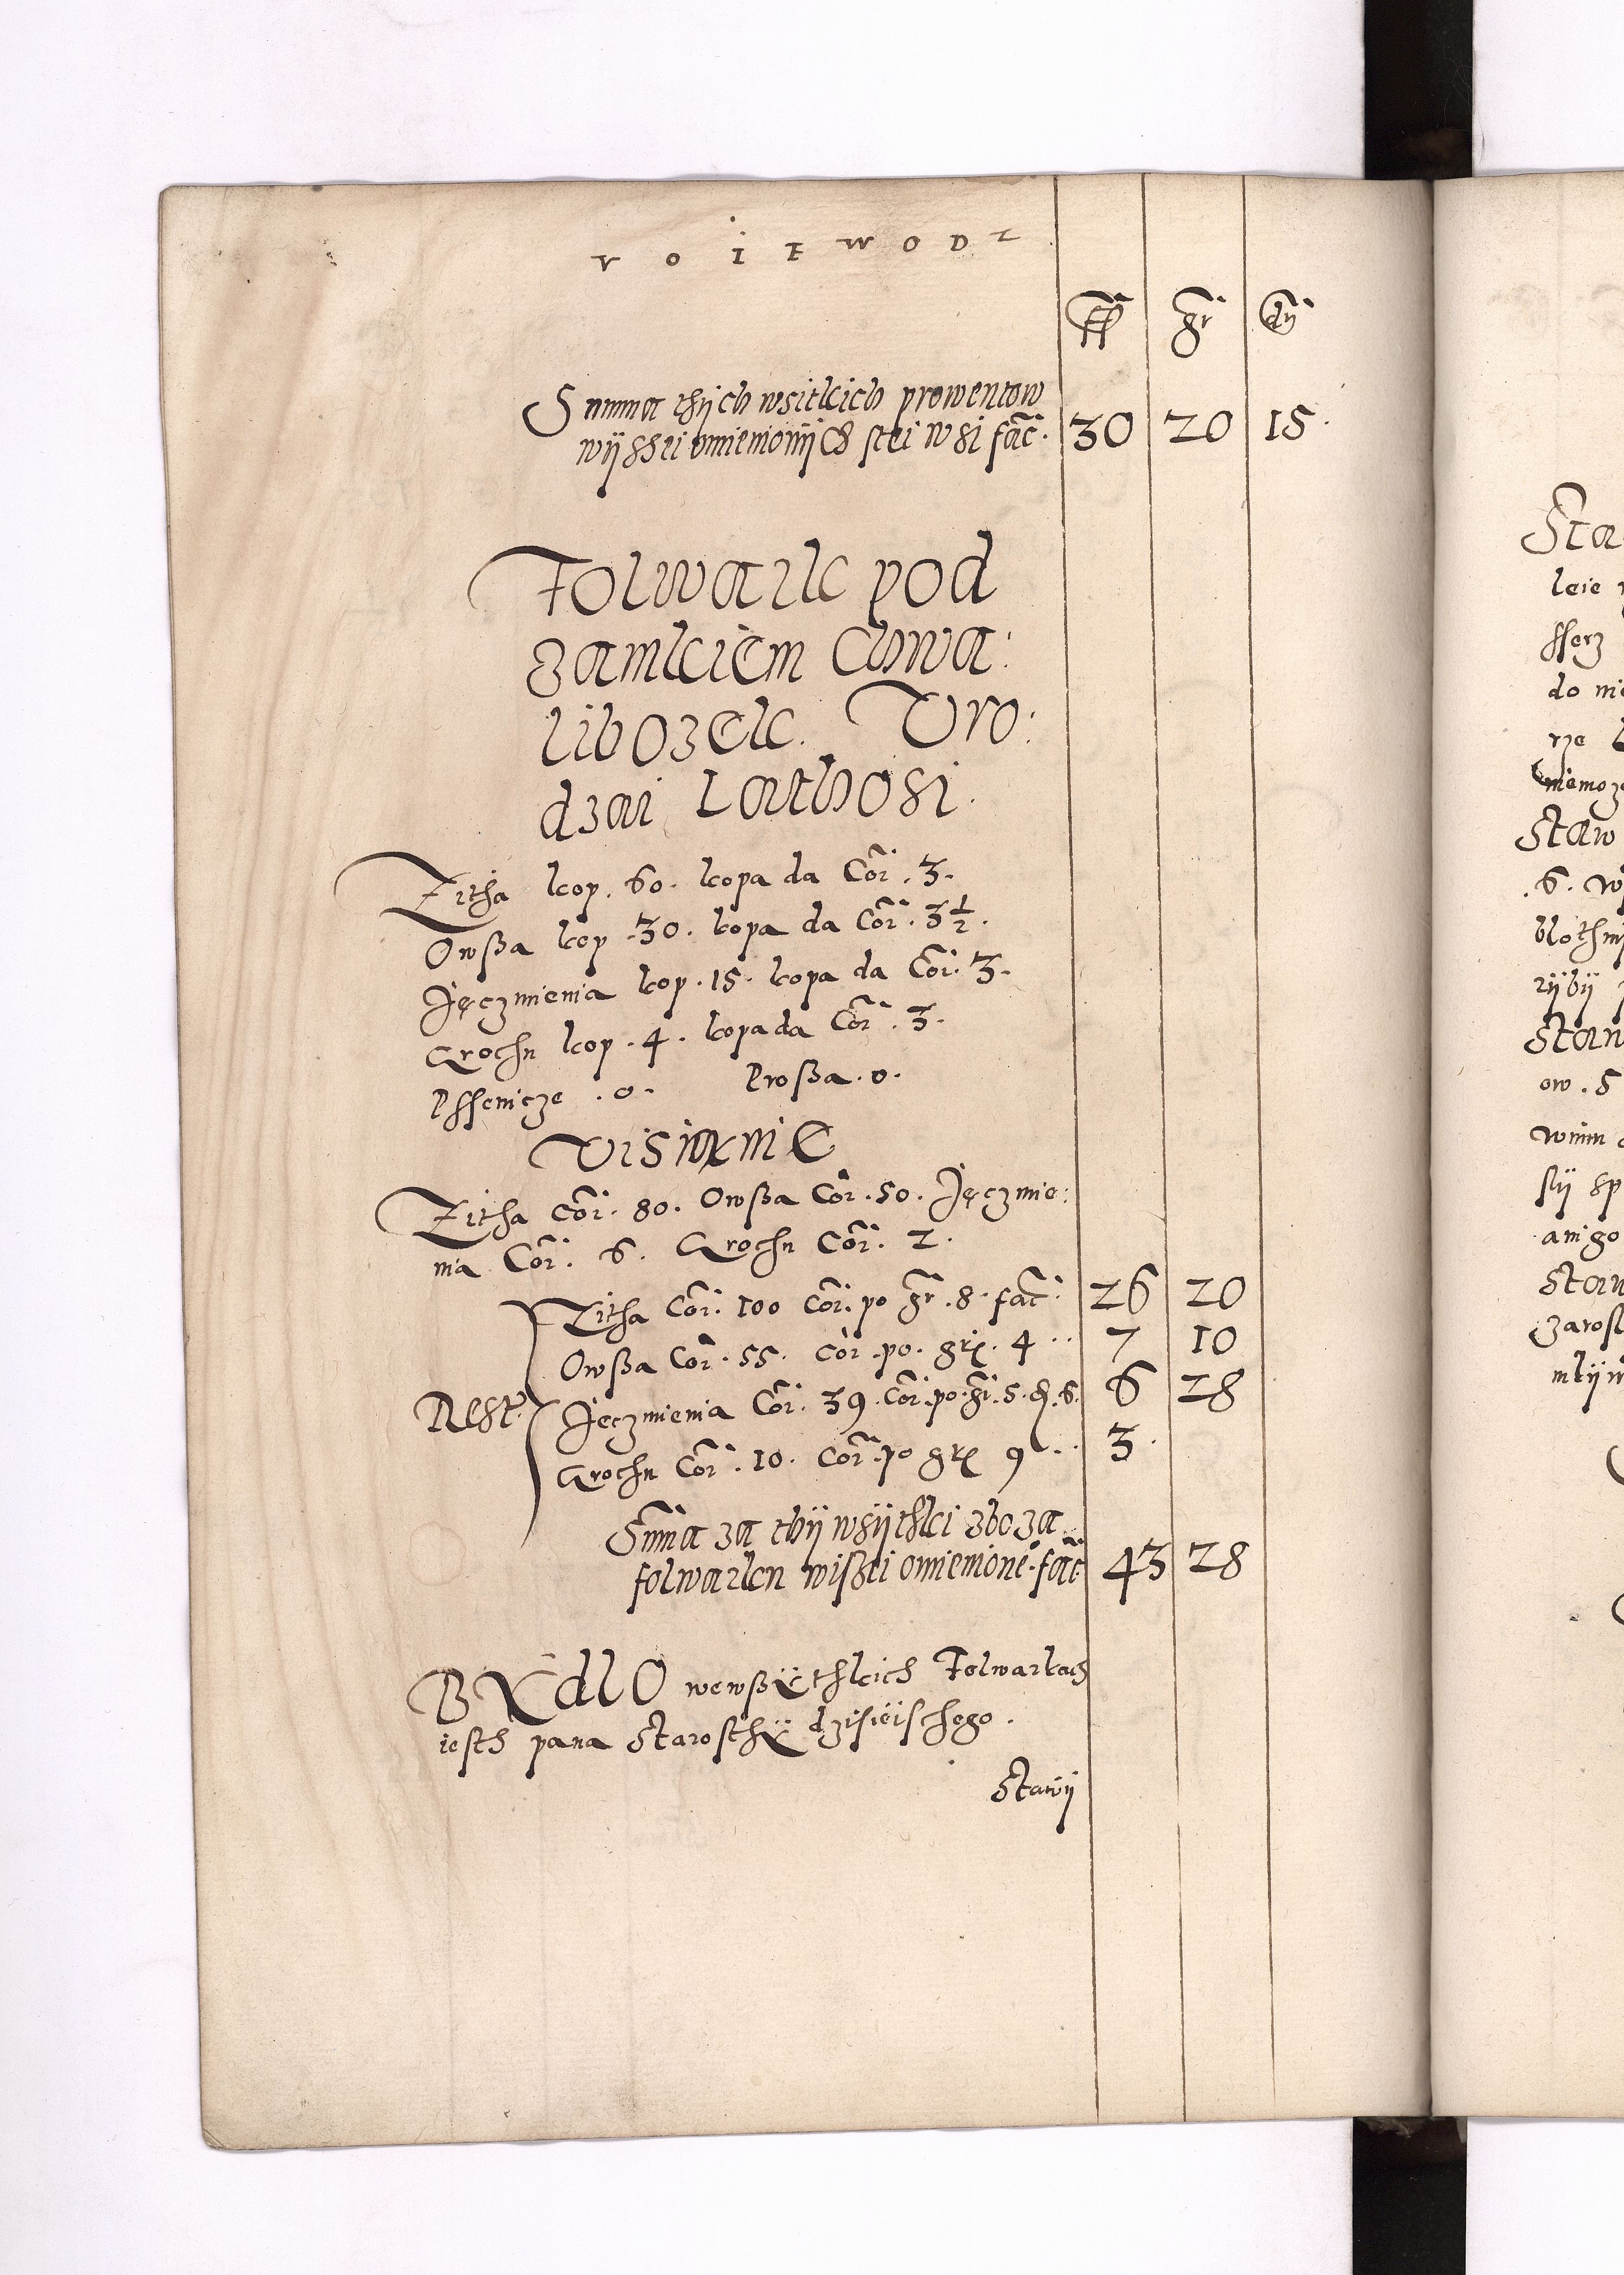 VOIEWODZ
ff gr d
Summa thych wsitkich prowentow
wyssei omienionych stei wsi fac. 30 20 15.
Folwark pod
zamkiem Chwa:
libozek. Vro:
dzai Lathosi.
Zitha kop. 60. kopa da Cor. 3.
Owßa kop .30. kopa da Cor. 3½.
Jęczmienia kop. 15. kopa da Cor. 3.
Grochu kop. 4. kopa da Cor. 3.
Pssenicze .0. Proßa .0.
Visianie
Zitha Cor. 80. Owßa Cor. 50. Jęczmie:
nia Cor. 6. Grochu Cor. 2.
Zitha Cor. 100 Cor. po gr. 8. fac. 26 20
Owßa Cor. 55. Cor. po. gr. 4 .. 7 10
Rest. Jęczmienia Cor. 39. Cor. po. gr. 5. d. 6. 6 28
Grochu Cor. 10. Cor. po gr 9 .. 3.
Sum̃a za thy wsythki zboza
folwarku wißei omienione. fac. 43 28
Bydlo wewßythkich Folwarkach
iesth pana Starosthy dzisieischego.
Stawy
Sta
leie
sserz
do nie
rze
niemoz
Staw
.6. w
bloth
ryby
Staw
ow. 5
winni
sly sp
ani go
Staw
zarosl
mly